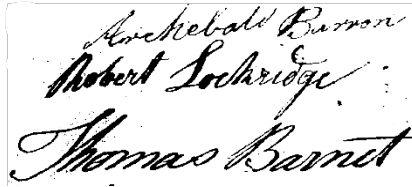 Archebald Barron
Robert Lockridge
Thomas Barnet